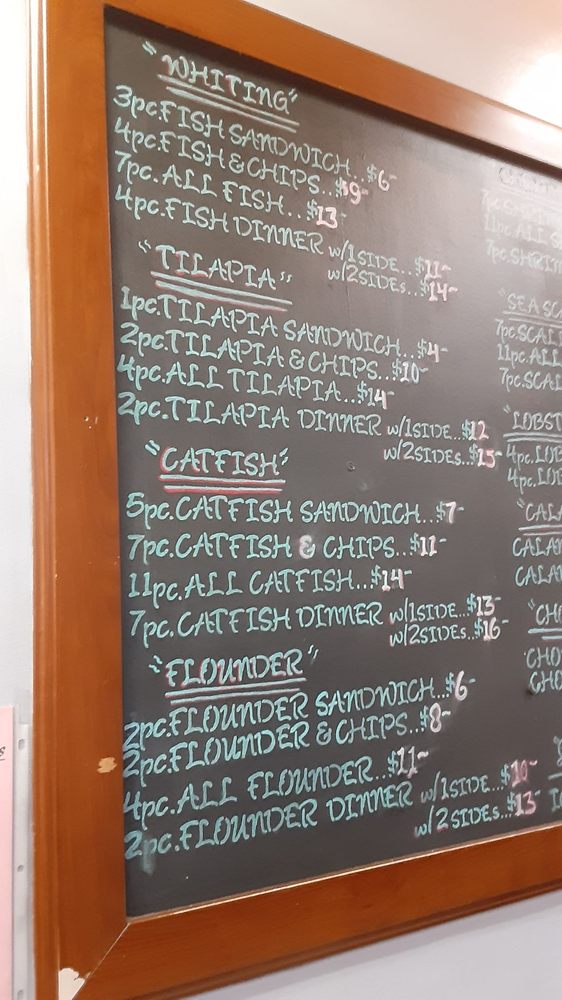 "WHITING"
3pc.FISH SANDWICH...$6-
4pc.FISH & CHIPS...$9-
7pc.ALL FISH...$13-
4pc.FISH DINNER w/1SIDE...$11-
w/2SIDEs...$14-
"TILAPIA"
1pc.TILAPIA SANDWICH...$4-
2pc.TILAPIA & CHIPS...$10-
4pc.ALL TILAPIA...$14-
2pc.TILAPIA DINNER w/1SIDE...$12
w/2SIDEs...$15-
"CATFISH"
5pc.CATFISH SANDWICH...$7-
7pc.CATFISH & CHIPS...$11-
11pc.ALL CATFISH...$14-
7pc.CATFISH DINNER w/1SIDE...$13-
w/2SIDEs...$16-
"FLOUNDER"
2pc.FLOUNDER SANDWICH...$6-
2pc.FLOUNDER & CHIPS...$8-
4pc.ALL FLOUNDER...$11-
2pc.FLOUNDER DINNER w/1SIDE...$10-
w/2SIDEs...$13-
7pc.SHRIM
"SEA SC
7pc.SCALL
11pc.ALL
7pc.SCAL
"LOBST
4pc.LOB
4pc.LOB
"CALA
CALAM
CALAM
"CHO
CHO
CHO